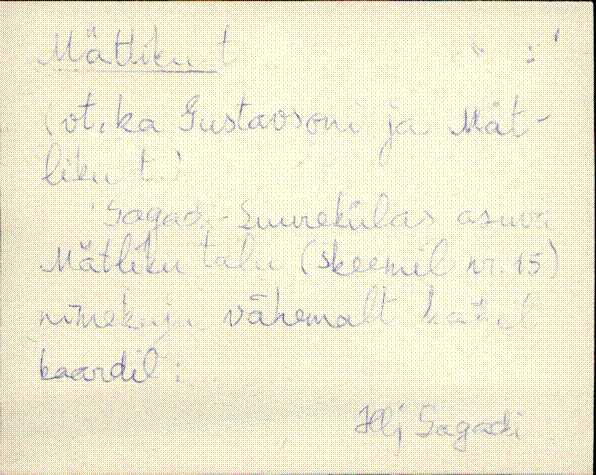 Mätliku t
(vt. ka Gustavsoni ja Mät-
liku t.)
Sagadi-Suurekülas asuva
Mätliku talu (skeemil nr. 15)
nimekuju vähemalt kahel
kaardil:
Hlj Sagadi